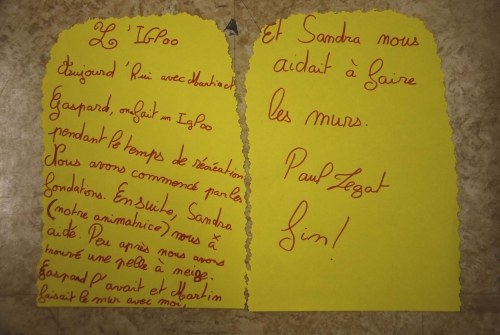 L'IGloo
Aujourd'hui avec Martin et
Gaspard, on fait un Igloo
pendant le temps de récréation
Nous avons commencé par les
fondations. Ensuite, Sandra
(notre animatrice) nous à
aidé. Peu après nous avons
trouvé une pelle à neige.
Gaspard l'avait et Martin
faisait le mur avec moi,
Et Sandra nous
aidait à faire
les murs.
Paul Zegat
Fin!